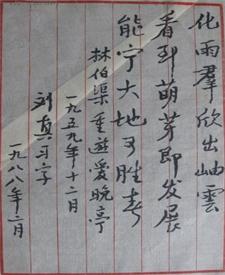 化雨羣欣出岫雲
看到萌芽即发展
能宁大地胜春
林伯渠重遊愛晚亭
一九五九年十二月
刘真习字
一九八八年二月